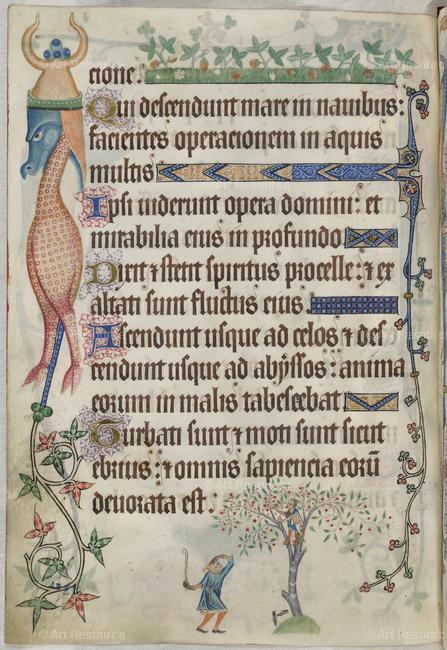 cione.
Qui descendunt mare in nauibus:
facientes operacionem in aquis
multis
Ipsi uiderunt opera domini: et
mirabilia eius in profundo
Dixit ⁊ stetit spiritus procelle: ⁊ ex
altati sunt fluctus eius.
Ascendunt usque ad celos ⁊ des
cendunt usque ad abyssos: anima
eorum in malis tabescebat
Turbati sunt ⁊ moti sunt sicut
ebrius: ⁊ omnis sapiencia eorū
deuorata est.
© Art Resource
© Art Resource